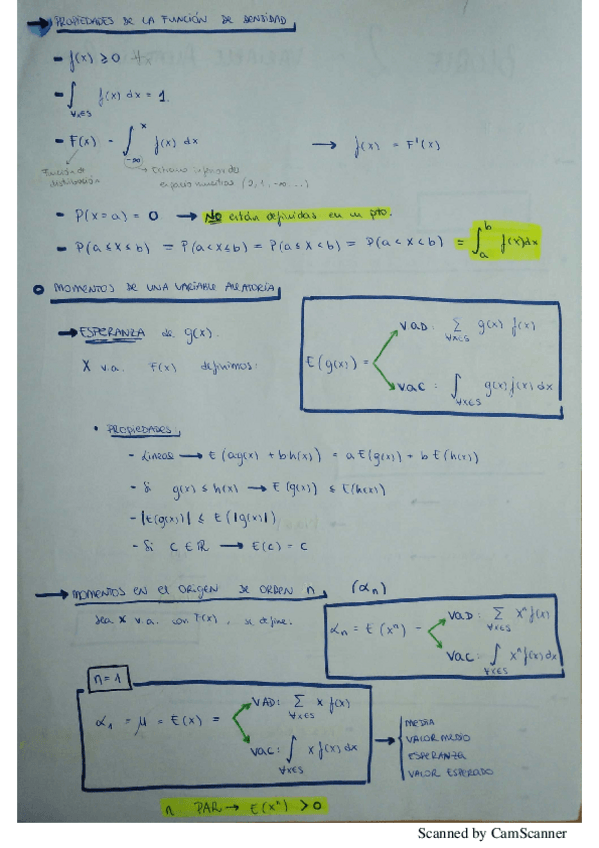 → PROPIEDADES DE LA FUNCIÓN DE DENSIDAD
- f(x) ≥ 0 ∀x
- ∫_{∀x∈S} f(x) dx = 1.
- F(x) = ∫_{-∞}^{x} f(x) dx → f(x) = F'(x)
Función de distribución
Extremo inferior do
espacio muestral (0, 1, -∞, ...)
- P(x=a) = 0 → NO están definidas en un pto.
- P(a≤X≤b) = P(a<X≤b) = P(a≤X<b) = P(a<X<b) = ∫_a^b f(x)dx
MOMENTOS DE UNA VARIABLE ALEATORIA
→ ESPERANZA de g(x).
X v.a. F(x) definimos:
E(g(x)) =
VAD: ∑_{∀x∈S} g(x) f(x)
VAC: ∫_{∀x∈S} g(x) f(x) dx
• PROPIEDADES
- Lineal → E(ag(x) + bh(x)) = aE(g(x)) + bE(h(x))
- Si g(x) ≤ h(x) → E(g(x)) ≤ E(h(x))
- |E(g(x))| ≤ E(|g(x)|)
- Si C ∈ ℝ → E(c) = c
→ MOMENTOS EN EL ORIGEN DE ORDEN n (αn)
Sea X v.a. con F(x), se define:
αn = E(xⁿ) =
VAD: ∑_{∀x∈S} xⁿ f(x)
VAC: ∫_{∀x∈S} xⁿ f(x) dx
n=1
α1 = μ = E(x) =
VAD: ∑_{∀x∈S} x f(x)
VAC: ∫_{∀x∈S} x f(x) dx
→ MEDIA
VALOR MEDIO
ESPERANZA
VALOR ESPERADO
n PAR → E(xⁿ) > 0
Scanned by CamScanner